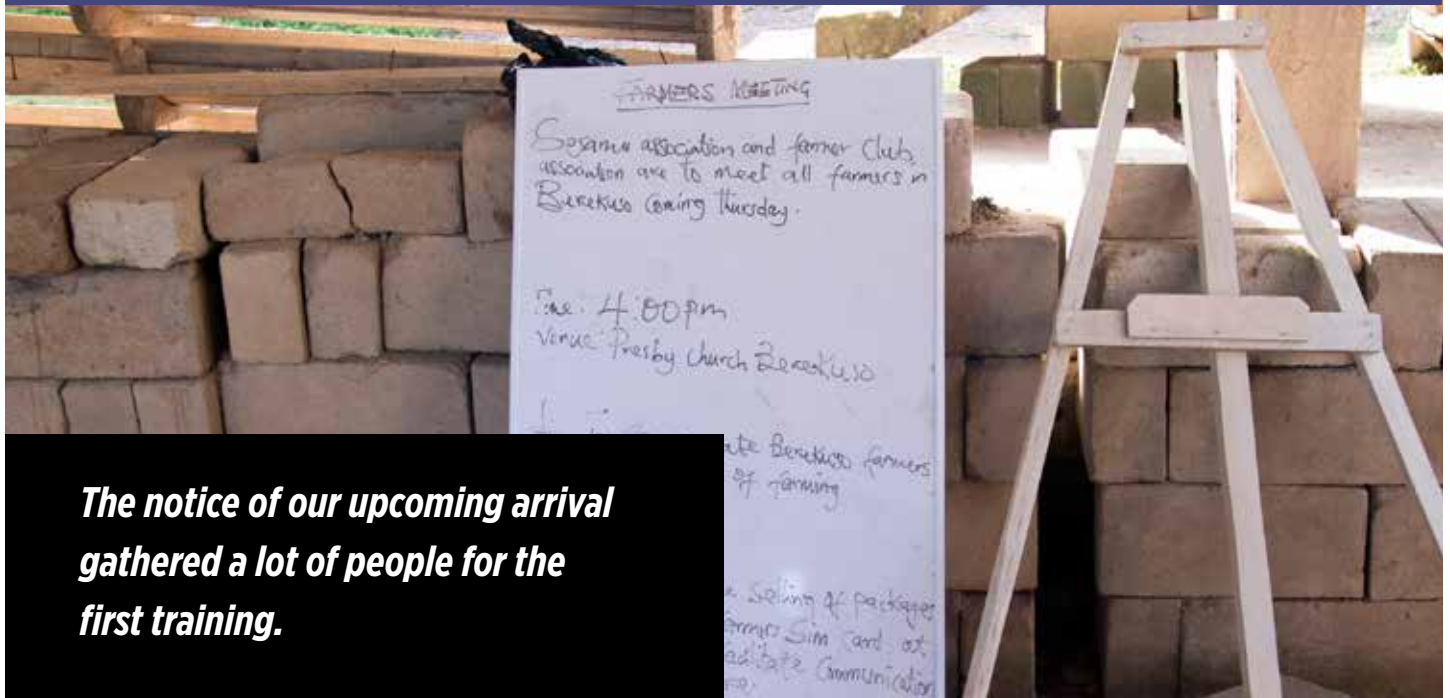 FARMERS MEETING
Sogama association and farmer Club,
association are to meet all farmers in
Berekuso coming thursday.
Time: 4:00pm
Venue: Presby church Berekuso
Berekuso farmers
of farming
selling of packages
Sim card at
Communication
The notice of our upcoming arrival
gathered a lot of people for the
first training.